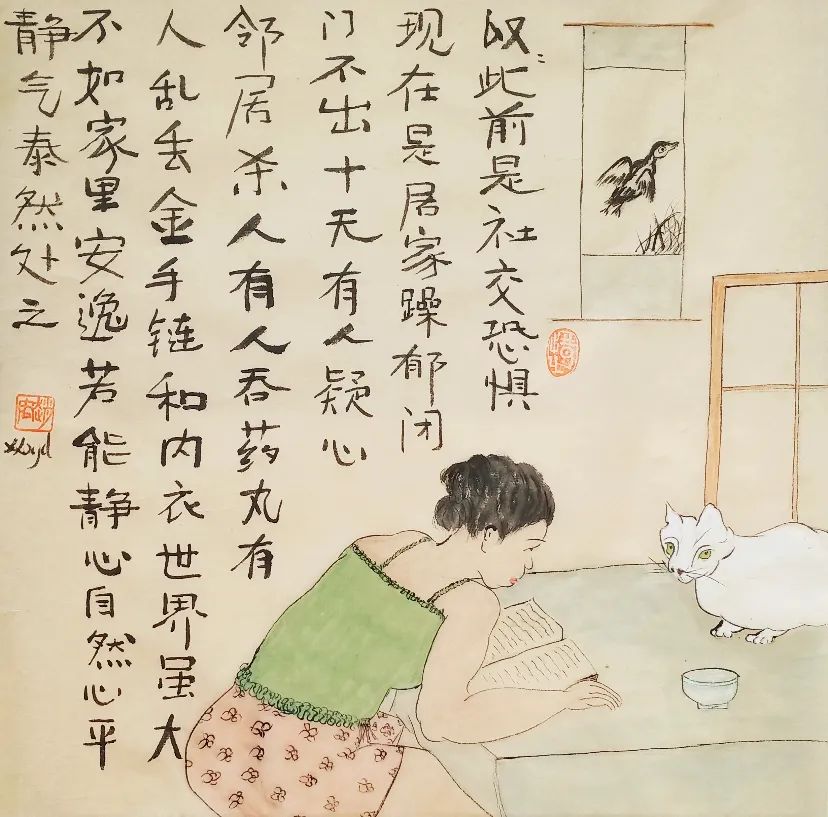 叹：此前是社交恐惧
现在是居家躁郁闭
门不出十天有人疑心
邻居杀人有人吞药丸有
人乱丢金手链和内衣世界虽大
不如家里安逸若能静心自然心平
静气泰然处之